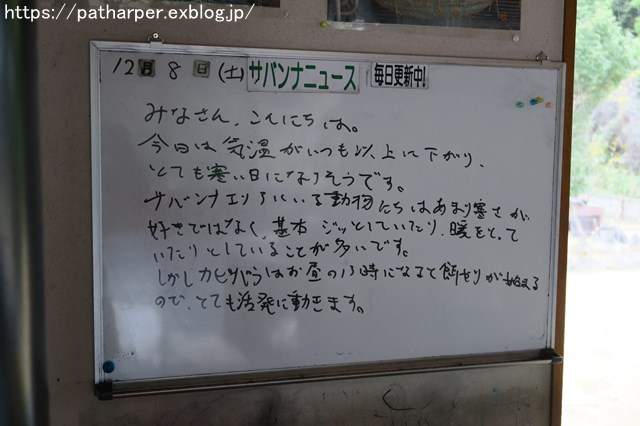 https://patharper.exblog.jp/
12月 8日 (土) サバンナニュース 毎日更新中!
みなさん、こんにちは。
今日は気温がいつも以上に下がり、
とても寒い日になりそうです。
サバンナエリアにいる動物たちはあまり寒さが
好きではなく、基本ジッとしていたり、暖をとって
いたりとしていることが多いです。
しかしカピバラはお昼の13時になると餌やりが始まる
ので、とても活発に動きます。